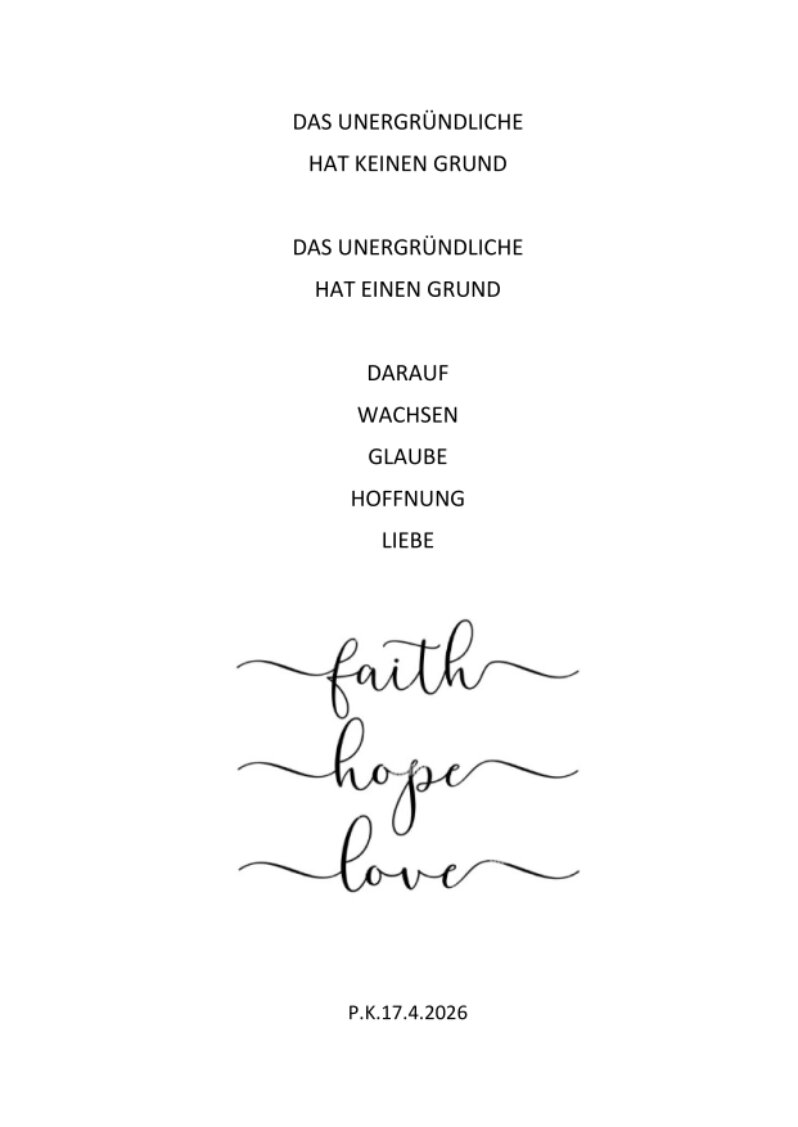 DAS UNERGRÜNDLICHE
HAT KEINEN GRUND
DAS UNERGRÜNDLICHE
HAT EINEN GRUND
DARAUF
WACHSEN
GLAUBE
HOFFNUNG
LIEBE
faith
hope
love
P.K.17.4.2026